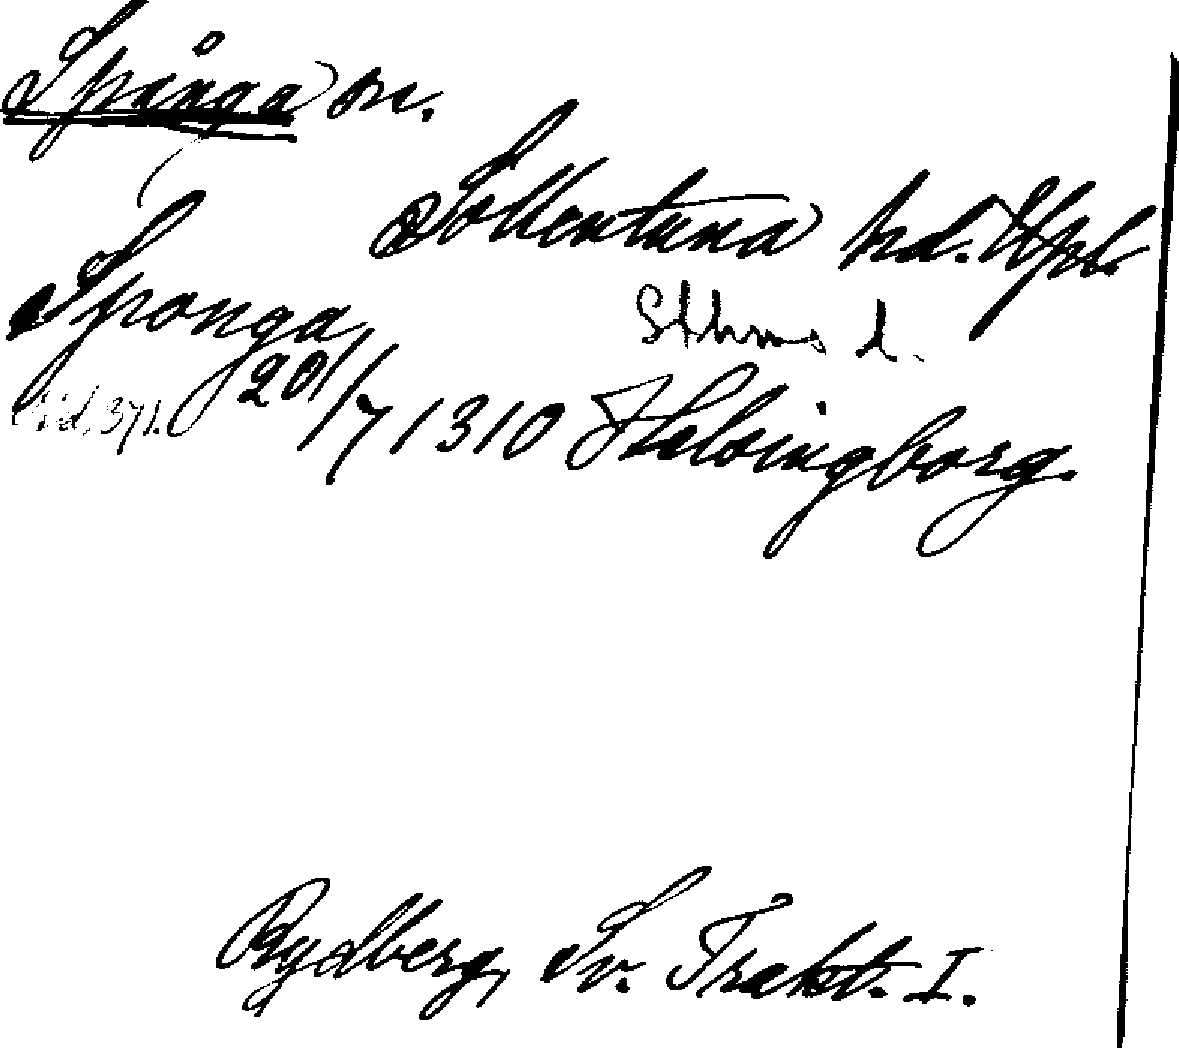 Spånga sn.
Sollentuna hd. Upl.
Sthms l.
Sponga,
sid. 371. 20/7 1310 Helsingborg.
Rydberg, Sv. Trakt. I.